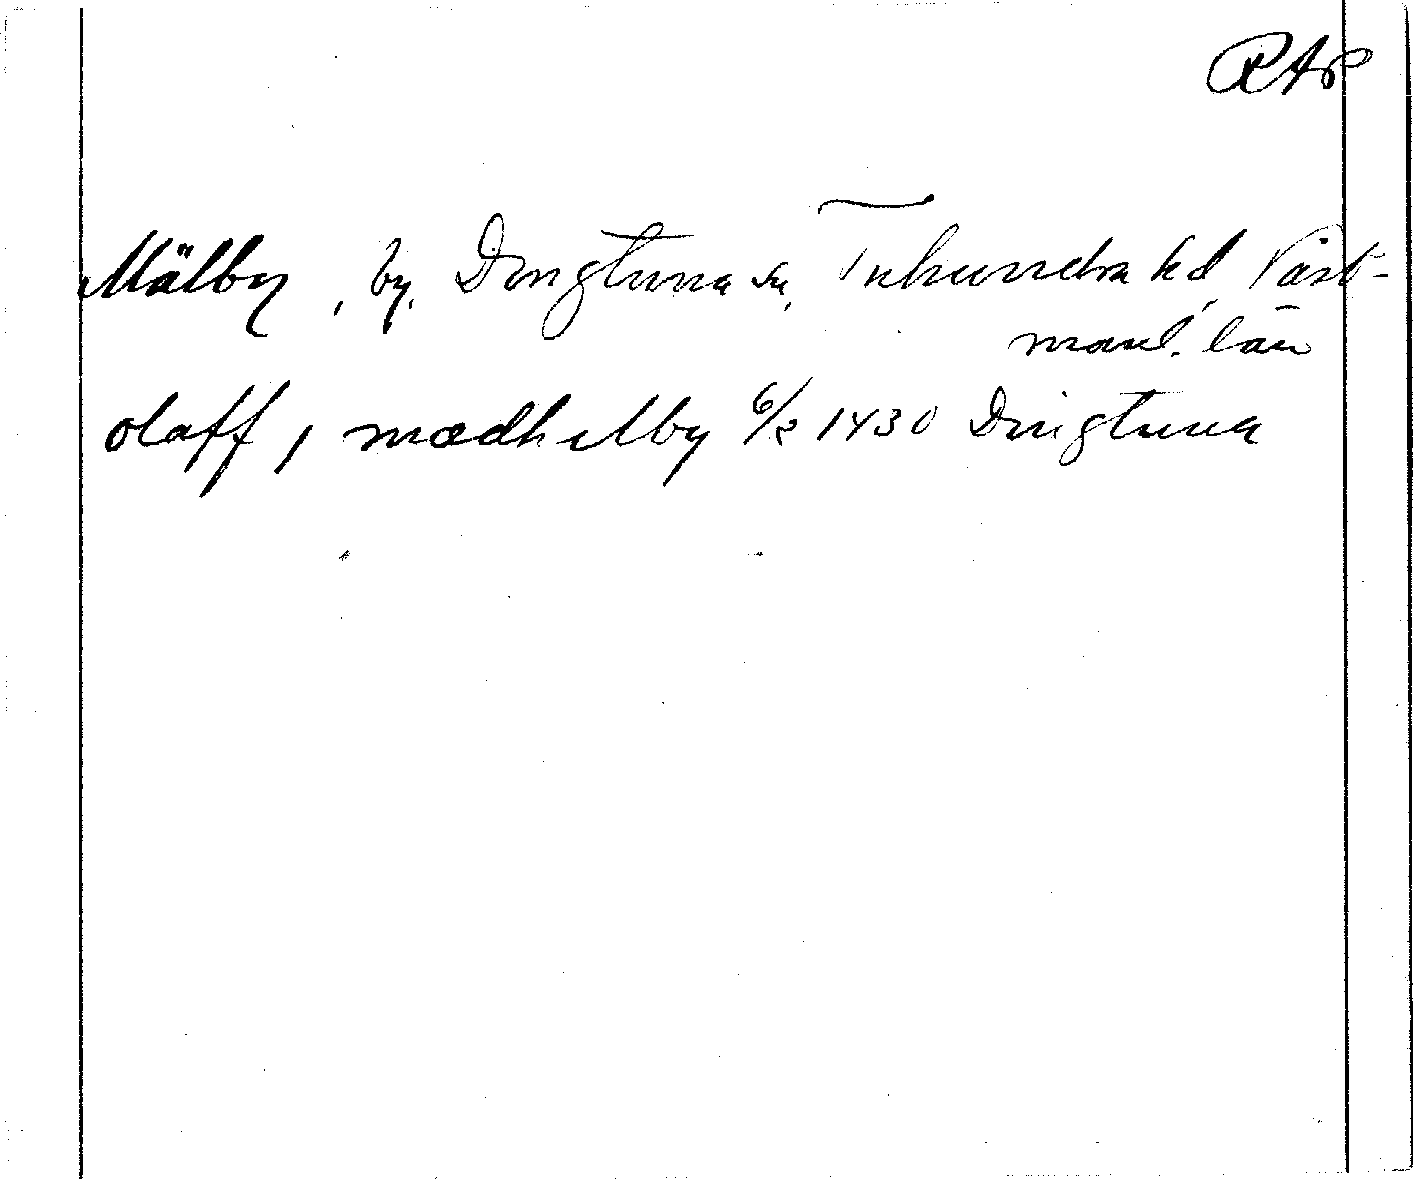 RAP
Mälby, by, Dingtuna sn, Tuhundra hd, Väst-
manl. län
olaff, mædhelby 6/2 1430 Dingtuna